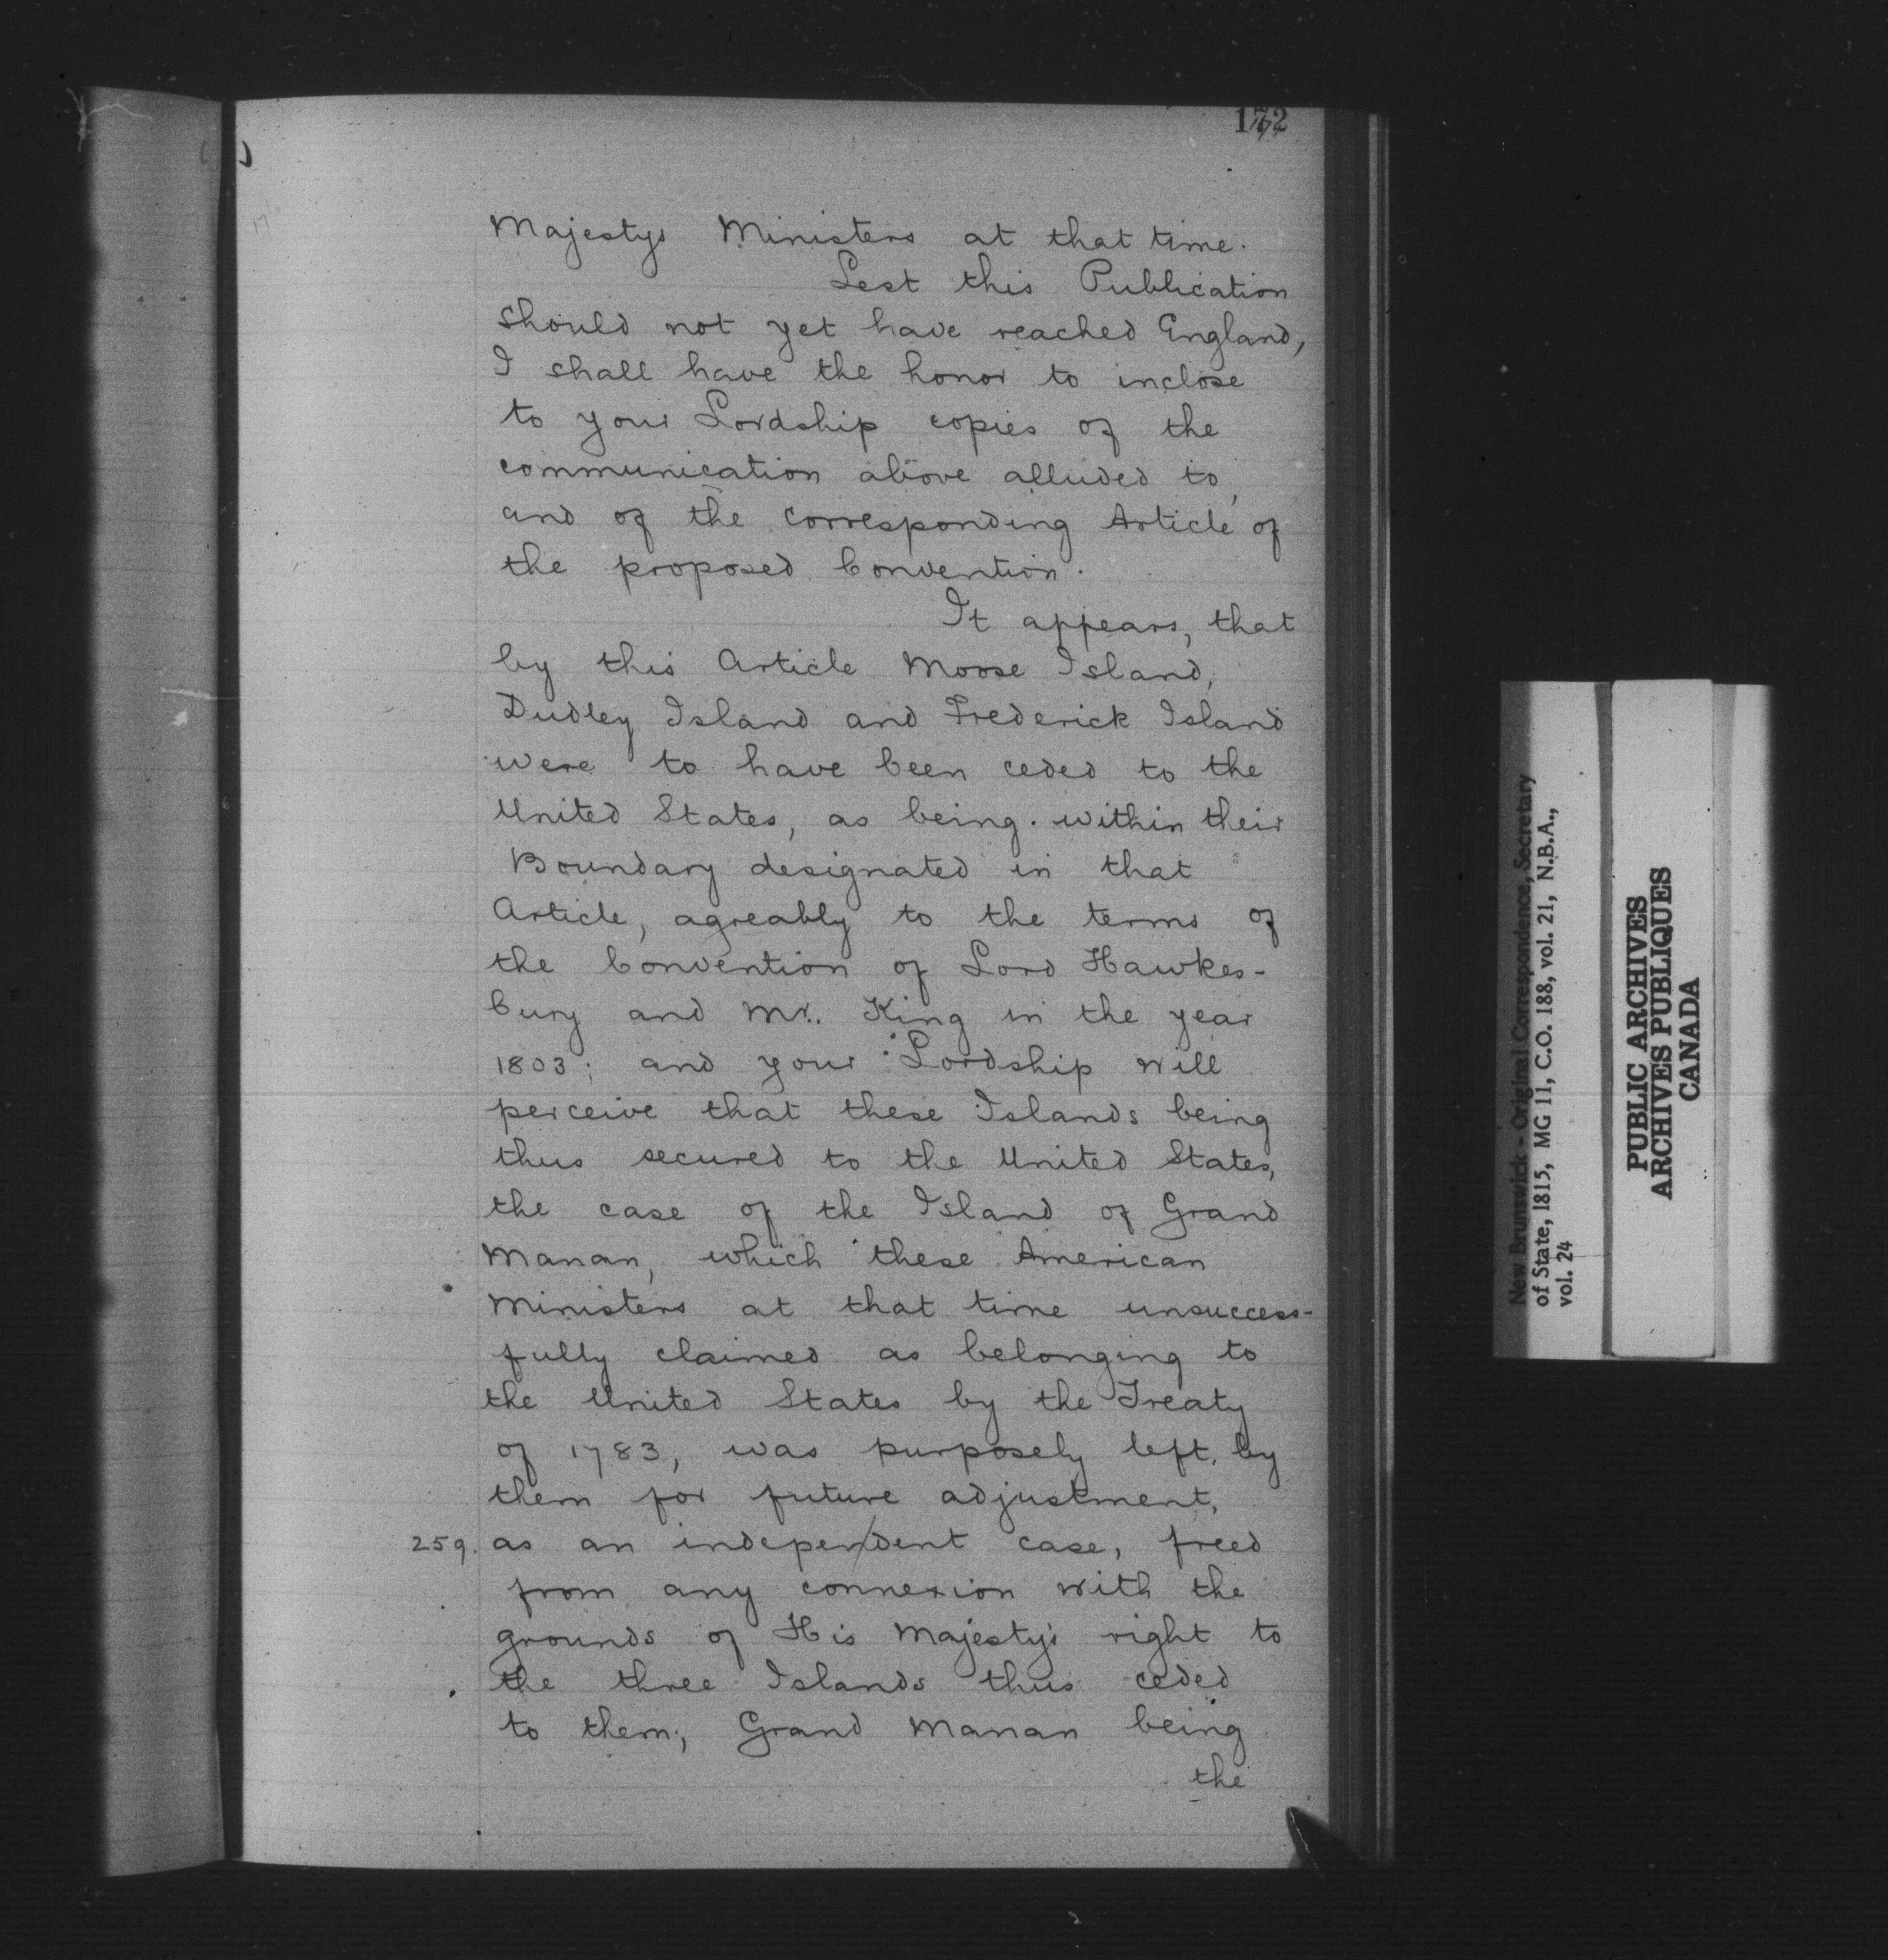 172
Majestys Ministers at that time.
Lest this Publication
should not yet have reached England,
I shall have the honor to inclose
to your Lordship copies of the
communication above alluded to,
and of the corresponding Article of
the proposed Convention.
It appears, that
by this Article Moose Island,
Dudley Island and Frederick Island
were to have been ceded to the
United States, as being within their
Boundary designated in that
Article, agreably to the terms of
the Convention of Lord Hawkes-
bury and Mr. King in the year
1803; and your Lordship will
perceive that these Islands being
thus secured to the United States,
the case of the Island of Grand
Manan, which these American
Ministers at that time unsuccess-
fully claimed as belonging to
the United States by the Treaty
of 1783, was purposely left by
them for future adjustment,
259. as an indepen/dent case, freed
from any connexion with the
grounds of His Majesty's right to
the three Islands thus ceded
to them; Grand Manan being
the
New Brunswick - Original Correspondence, Secretary
of State, 1815, MG 11, C.O. 188, vol. 21, N.B.A.,
vol. 24
PUBLIC ARCHIVES
ARCHIVES PUBLIQUES
CANADA